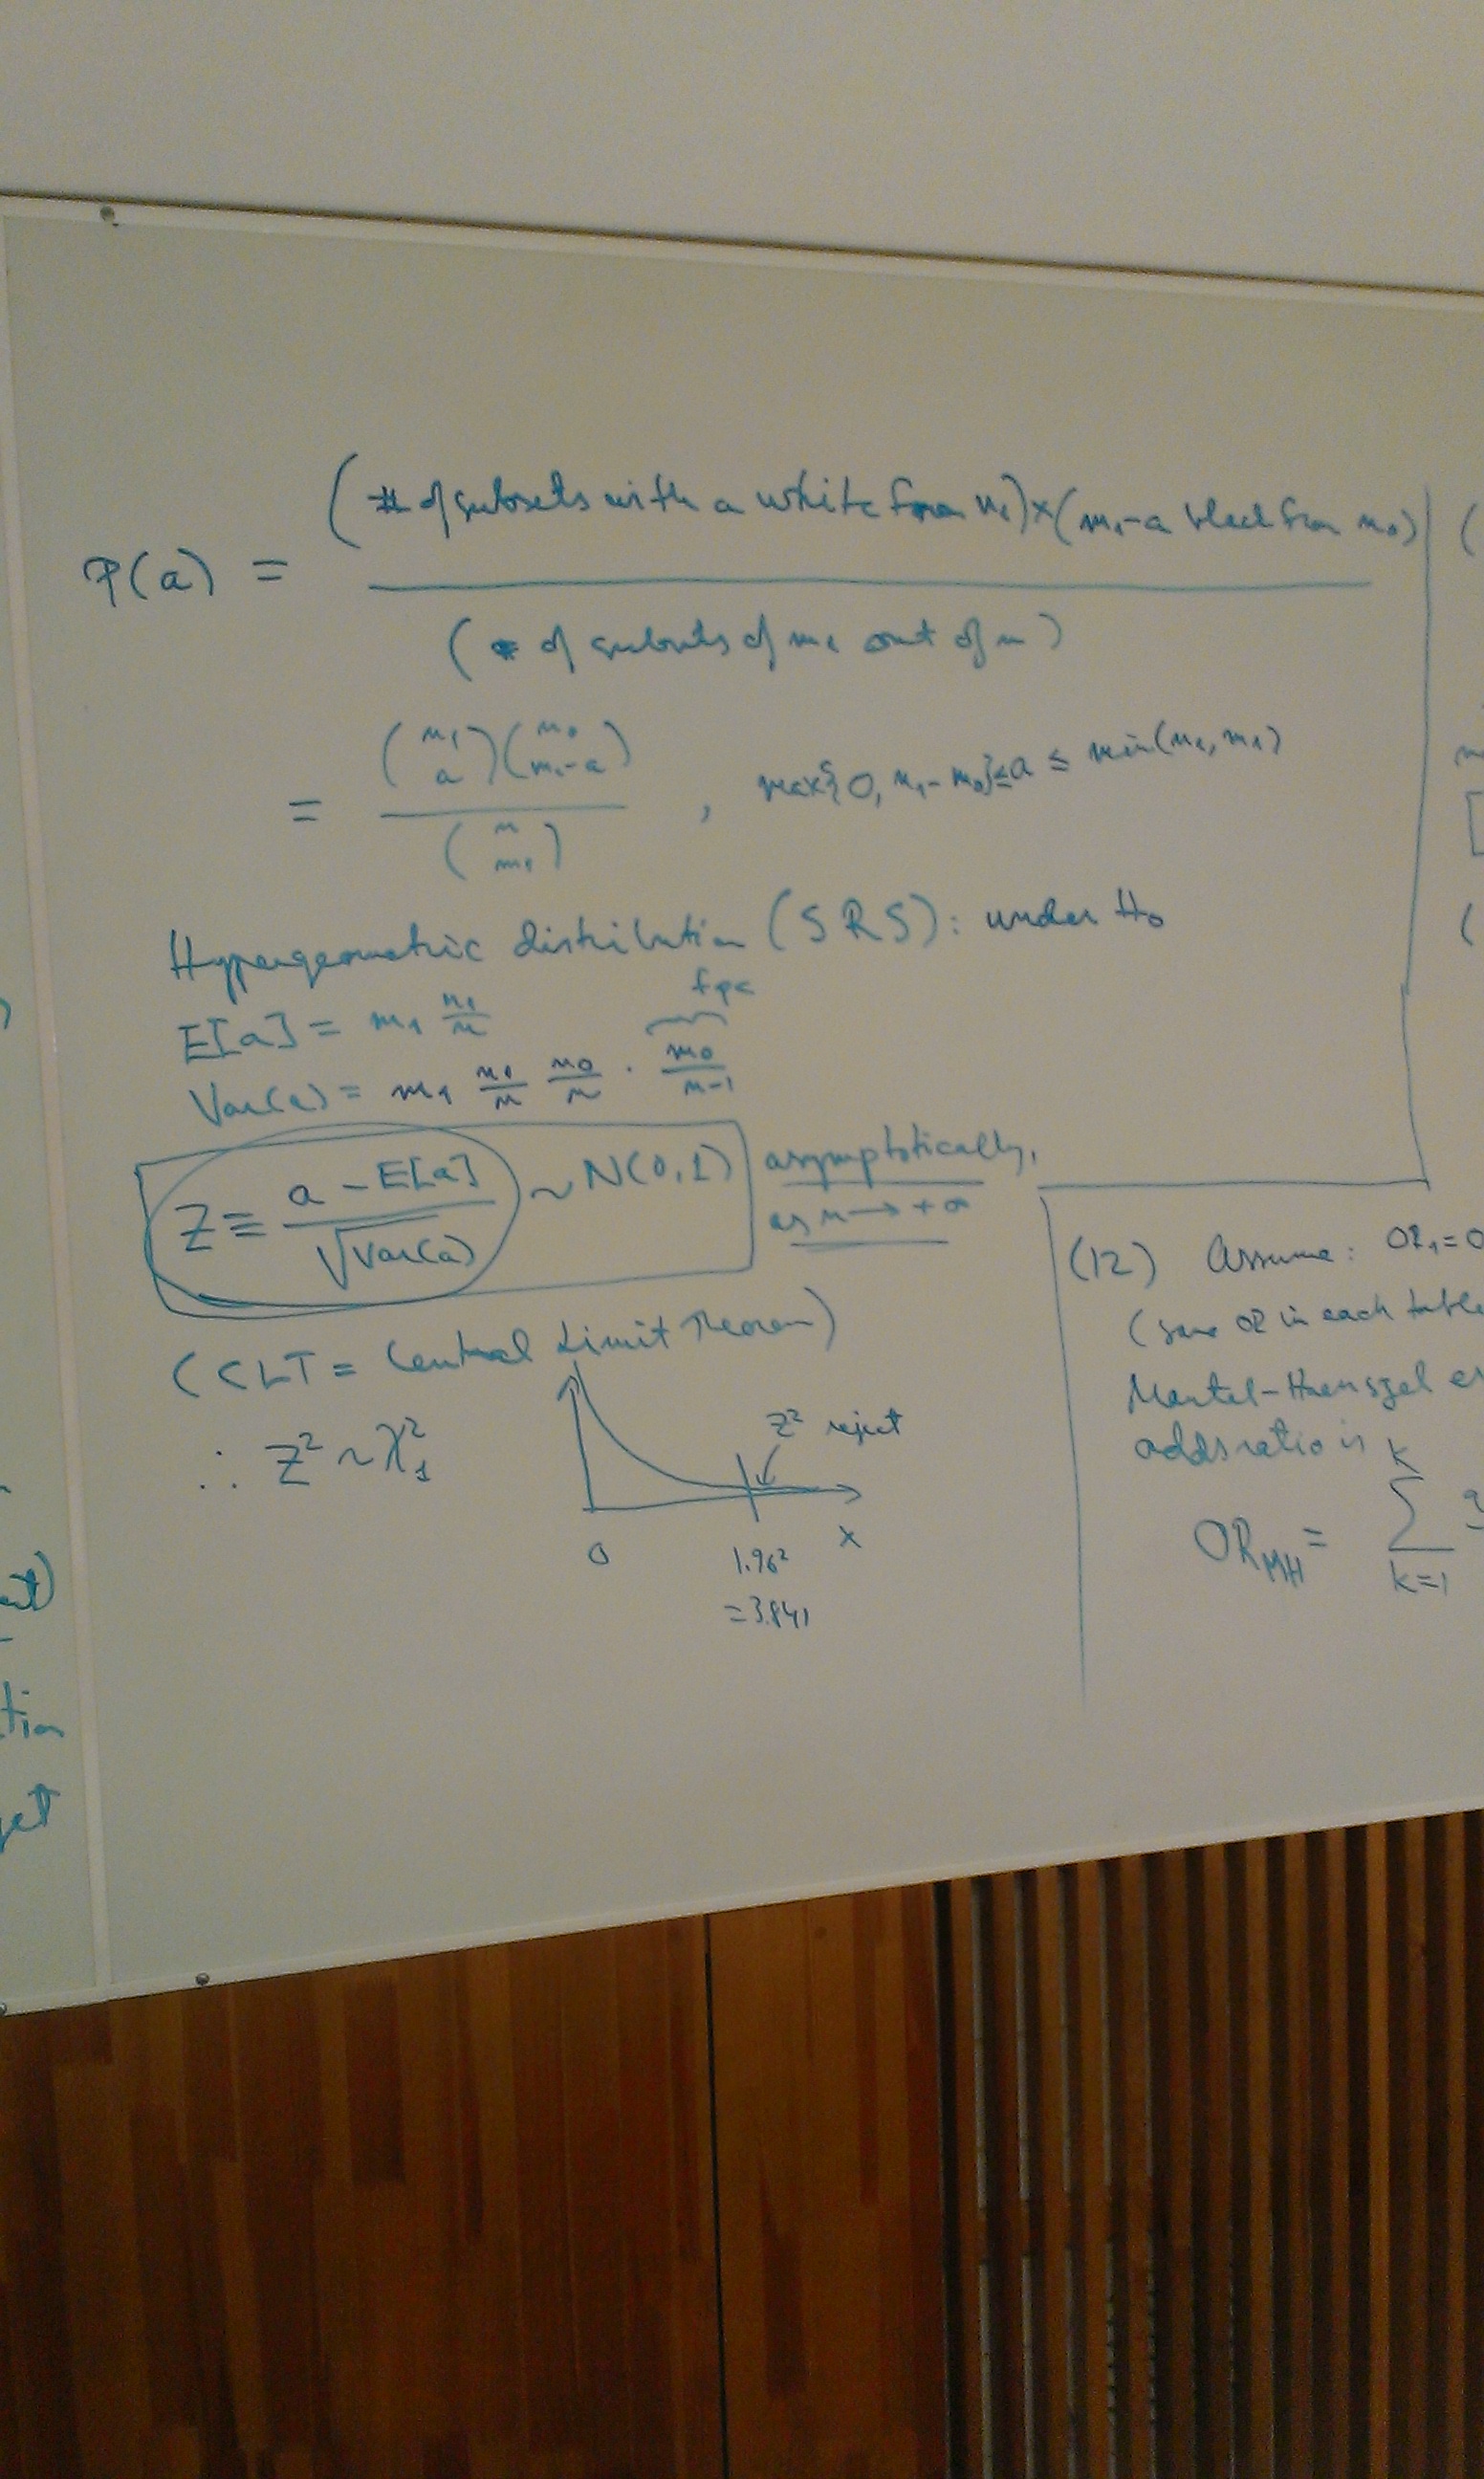 P(a) = (# of subsets with a white from n₁) × (m₁-a black from n₀)
(# of subsets of m₁ out of n)
= (n₁ a)(n₀ m₁-a) / (n m₁) , max{0, n₁-m₀} ≤ a ≤ min(n₁, m₁)
Hypergeometric distribution (SRS): under H₀
fpc
E[a] = m₁ n₁/n
Var(a) = m₁ n₁/n n₀/n · m₀/n-1
Z ≡ a - E[a] / √Var(a) ~ N(0,1) asymptotically,
as n → +∞
(CLT = Central Limit Theorem)
∴ Z² ~ χ²₁
Z² reject
0 1.96² x
= 3.841
(12) Assume: OR₁ =
(same OR in each table
Mantel-Haenszel
odds ratio is
OR_MH = K ∑ k=1